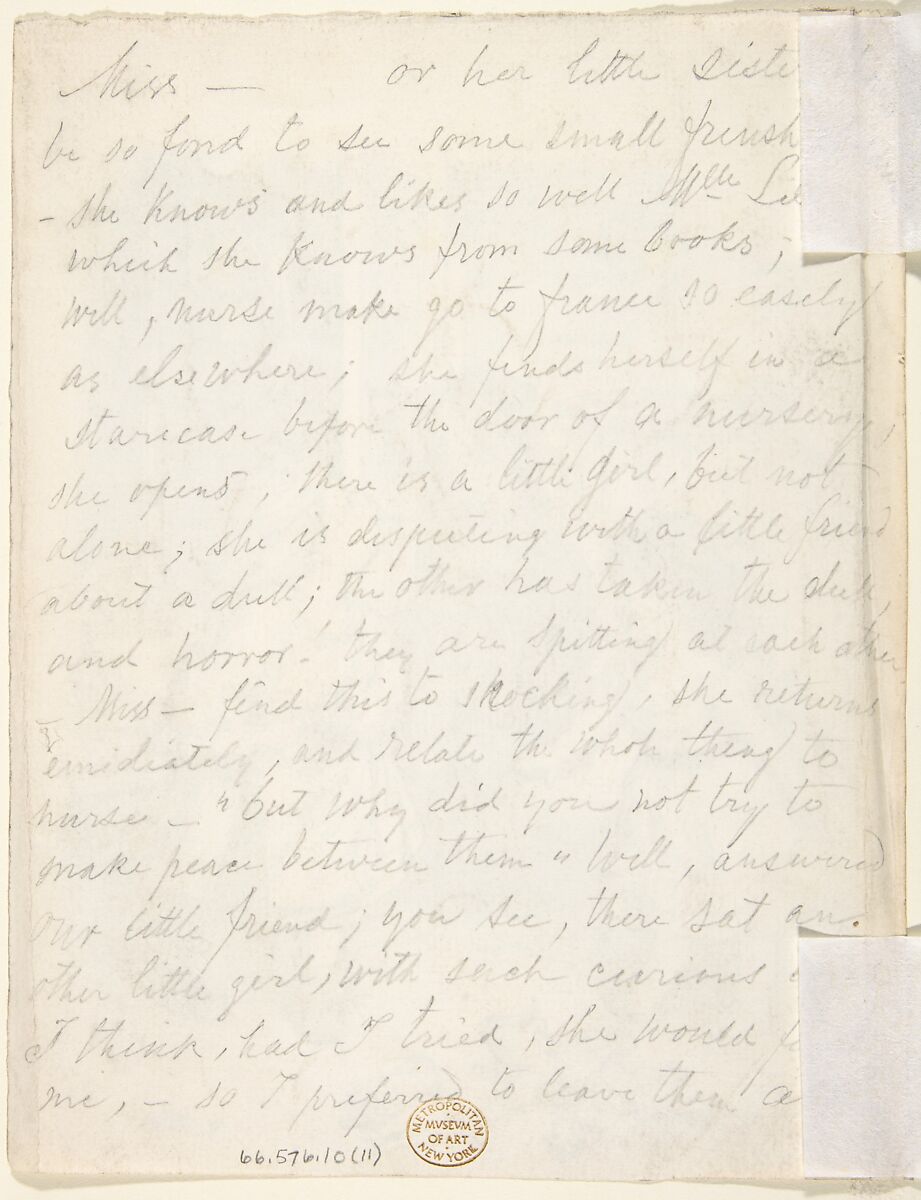 Miss — or her little siste
be so fond to see some small frensh
- she knows and likes so well Mlle Lil
which she knows from some books;
Will, nurse make go to france so easely
as elsewhere; she finds herself in a
staricase before the door of a nursery,
she opens; there is a little girl, but not
alone; she is disputing with a little friend
about a dull; the other has taken the dull,
and horror! they are spitting at each other
Miss — find this to shocking, she returns
emidiately, and relate the whole thing to
nurse — "but why did you not try to
make peace between them" Well, answered
our little friend; you see, there sat an
other little girl, with such curious
I think, had I tried, she would
me, — so I preferred to leave them a
66.576.10(11)
METROPOLITAN
MVSEVM
OF ART
NEW YORK